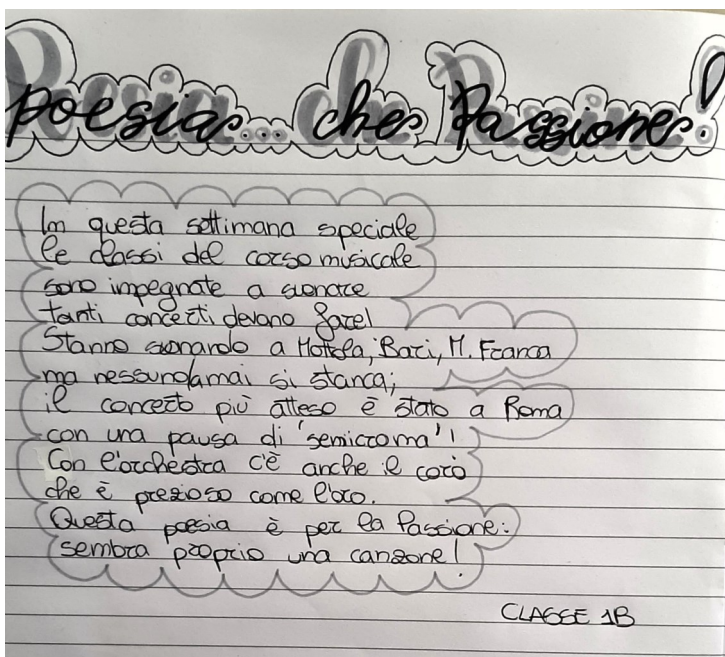 Poesia... che Passione!
In questa settimana speciale
le classi del corso musicale
sono impegnate a suonare
tanti concerti devono fare!
Stanno suonando a Mottola, Bari, M. Franca
ma nessuno mai si stanca;
il concerto più atteso è stato a Roma
con una pausa di 'semicroma'!
Con l'orchestra c'è anche il coro
che è prezioso come l'oro.
Questa poesia è per la Passione:
sembra proprio una canzone!
CLASSE 1B